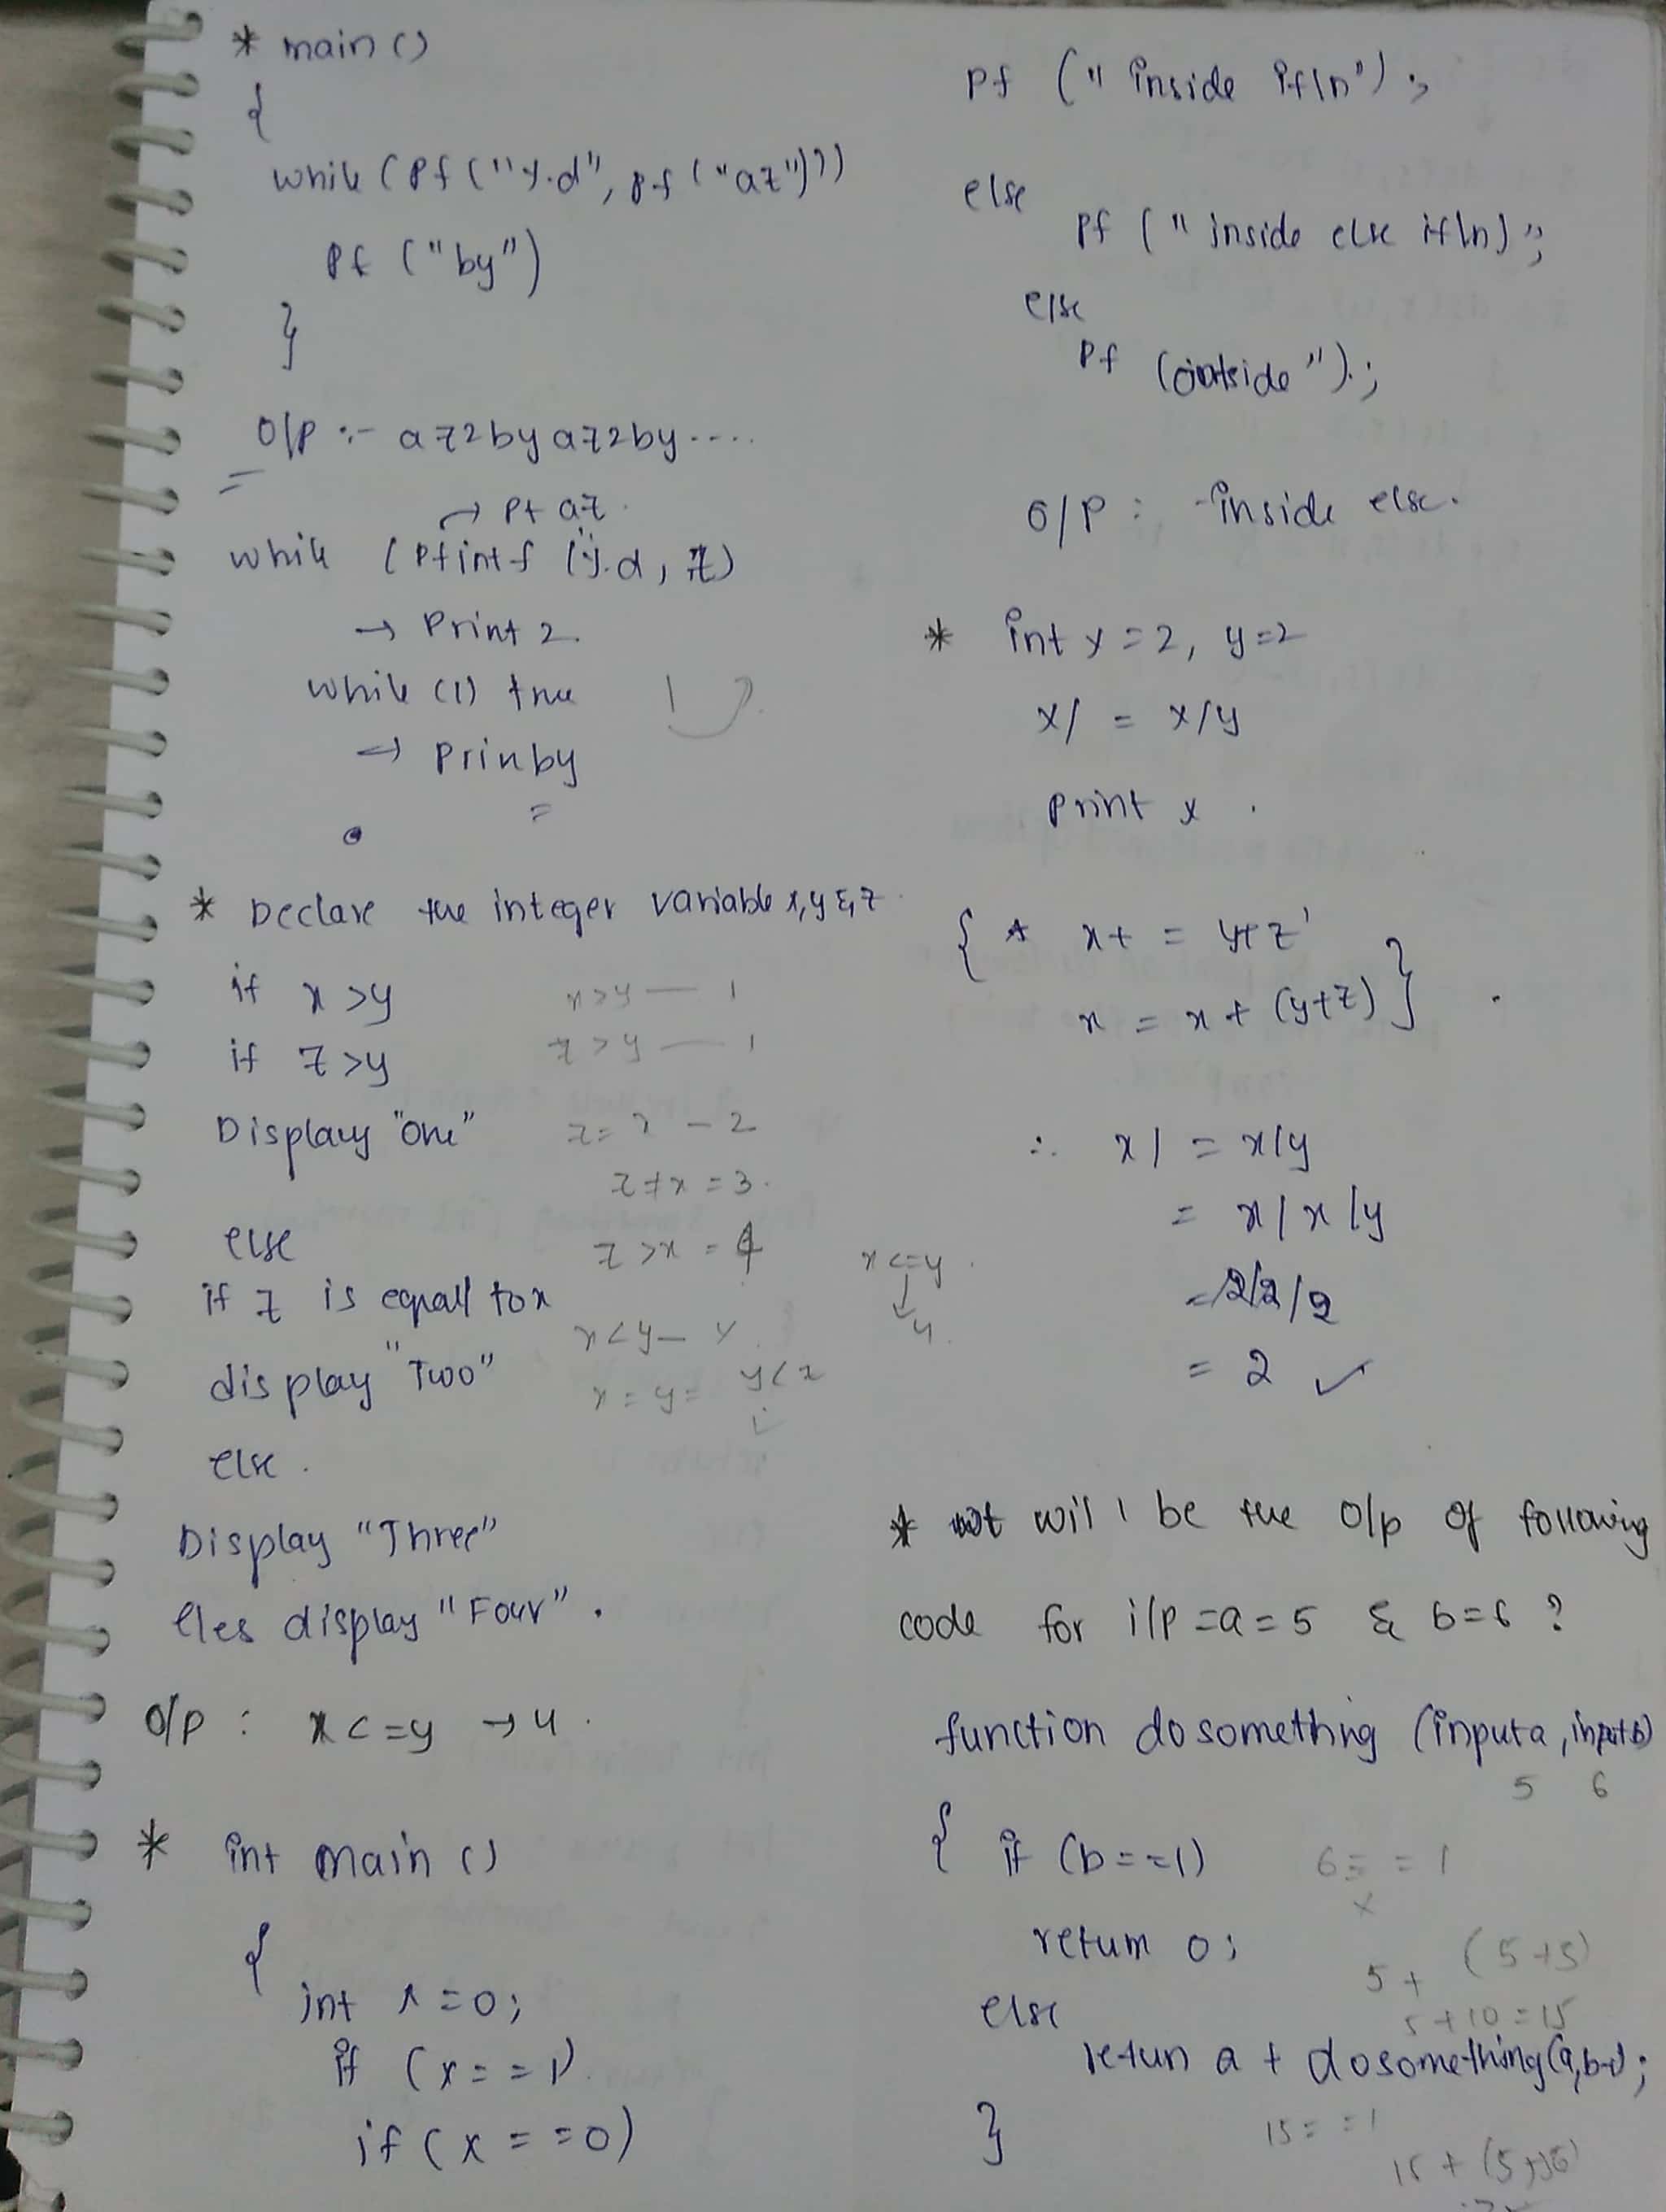 * main ()
{
while (Pf ("%.d", pf ("az")))
Pf ("by")
}
O/P :- az2byaz2by....
→ Pt az.
while (Ptintf (%.d, z)
→ Print 2.
while (1) true
→ Prinby
* Declare the integer variable x,y & z.
if x >y
x>y — 1
if z >y
z >y — 1
Display "One"
z = x - 2
z ≠ x = 3.
else
z >x = 4
x <= y.
↓
4.
if z is equall to x
x < y —
display "Two"
x = y =
y < z
else.
Display "Three"
Eles display "Four".
O/P : x <= y → 4.
* int main ()
{
int x = 0;
if (x = = 1)
if (x = = 0)
Pf (" inside if\n");
else
Pf (" inside else if\n) ";
else
Pf (outside ");
O/P : -inside else.
* int x = 2, y = 2
x/ = x/y
Print x.
{ * x+ = y+z
x = x + (y+z) }
∴ x/ = x/y
= x/x/y
= 2/2/2
= 2 ✓
* wt will be the o/p of following
code for i/p = a = 5 & b = 6 ?
function dosomething (inputa, inputb)
5 6
{ if (b = = 1)
6 = = 1
x
return 0;
5 + (5+5)
else
5 + 10 = 15
retun a + dosomething(a,b-1);
}
15 = = 1
15 +